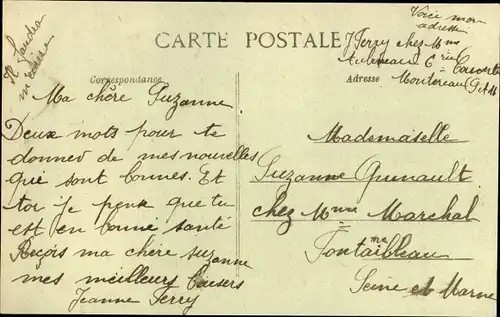 Voici mon
adresse
J Ferry chez Mme
CARTE POSTALE
Correspondance
Adresse
Montereau S et M
Ma chère Suzanne
Deux mots pour te
donner de mes nouvelles
qui sont bonnes. Et
toi je pense que tu
est en bonne santé
Reçois ma chère suzanne
mes meilleurs baisers
Jeanne Ferry
Mademaiselle
Suzanne Gunault
chez Mme Marchal
Fontaibleau
Seine et Marne